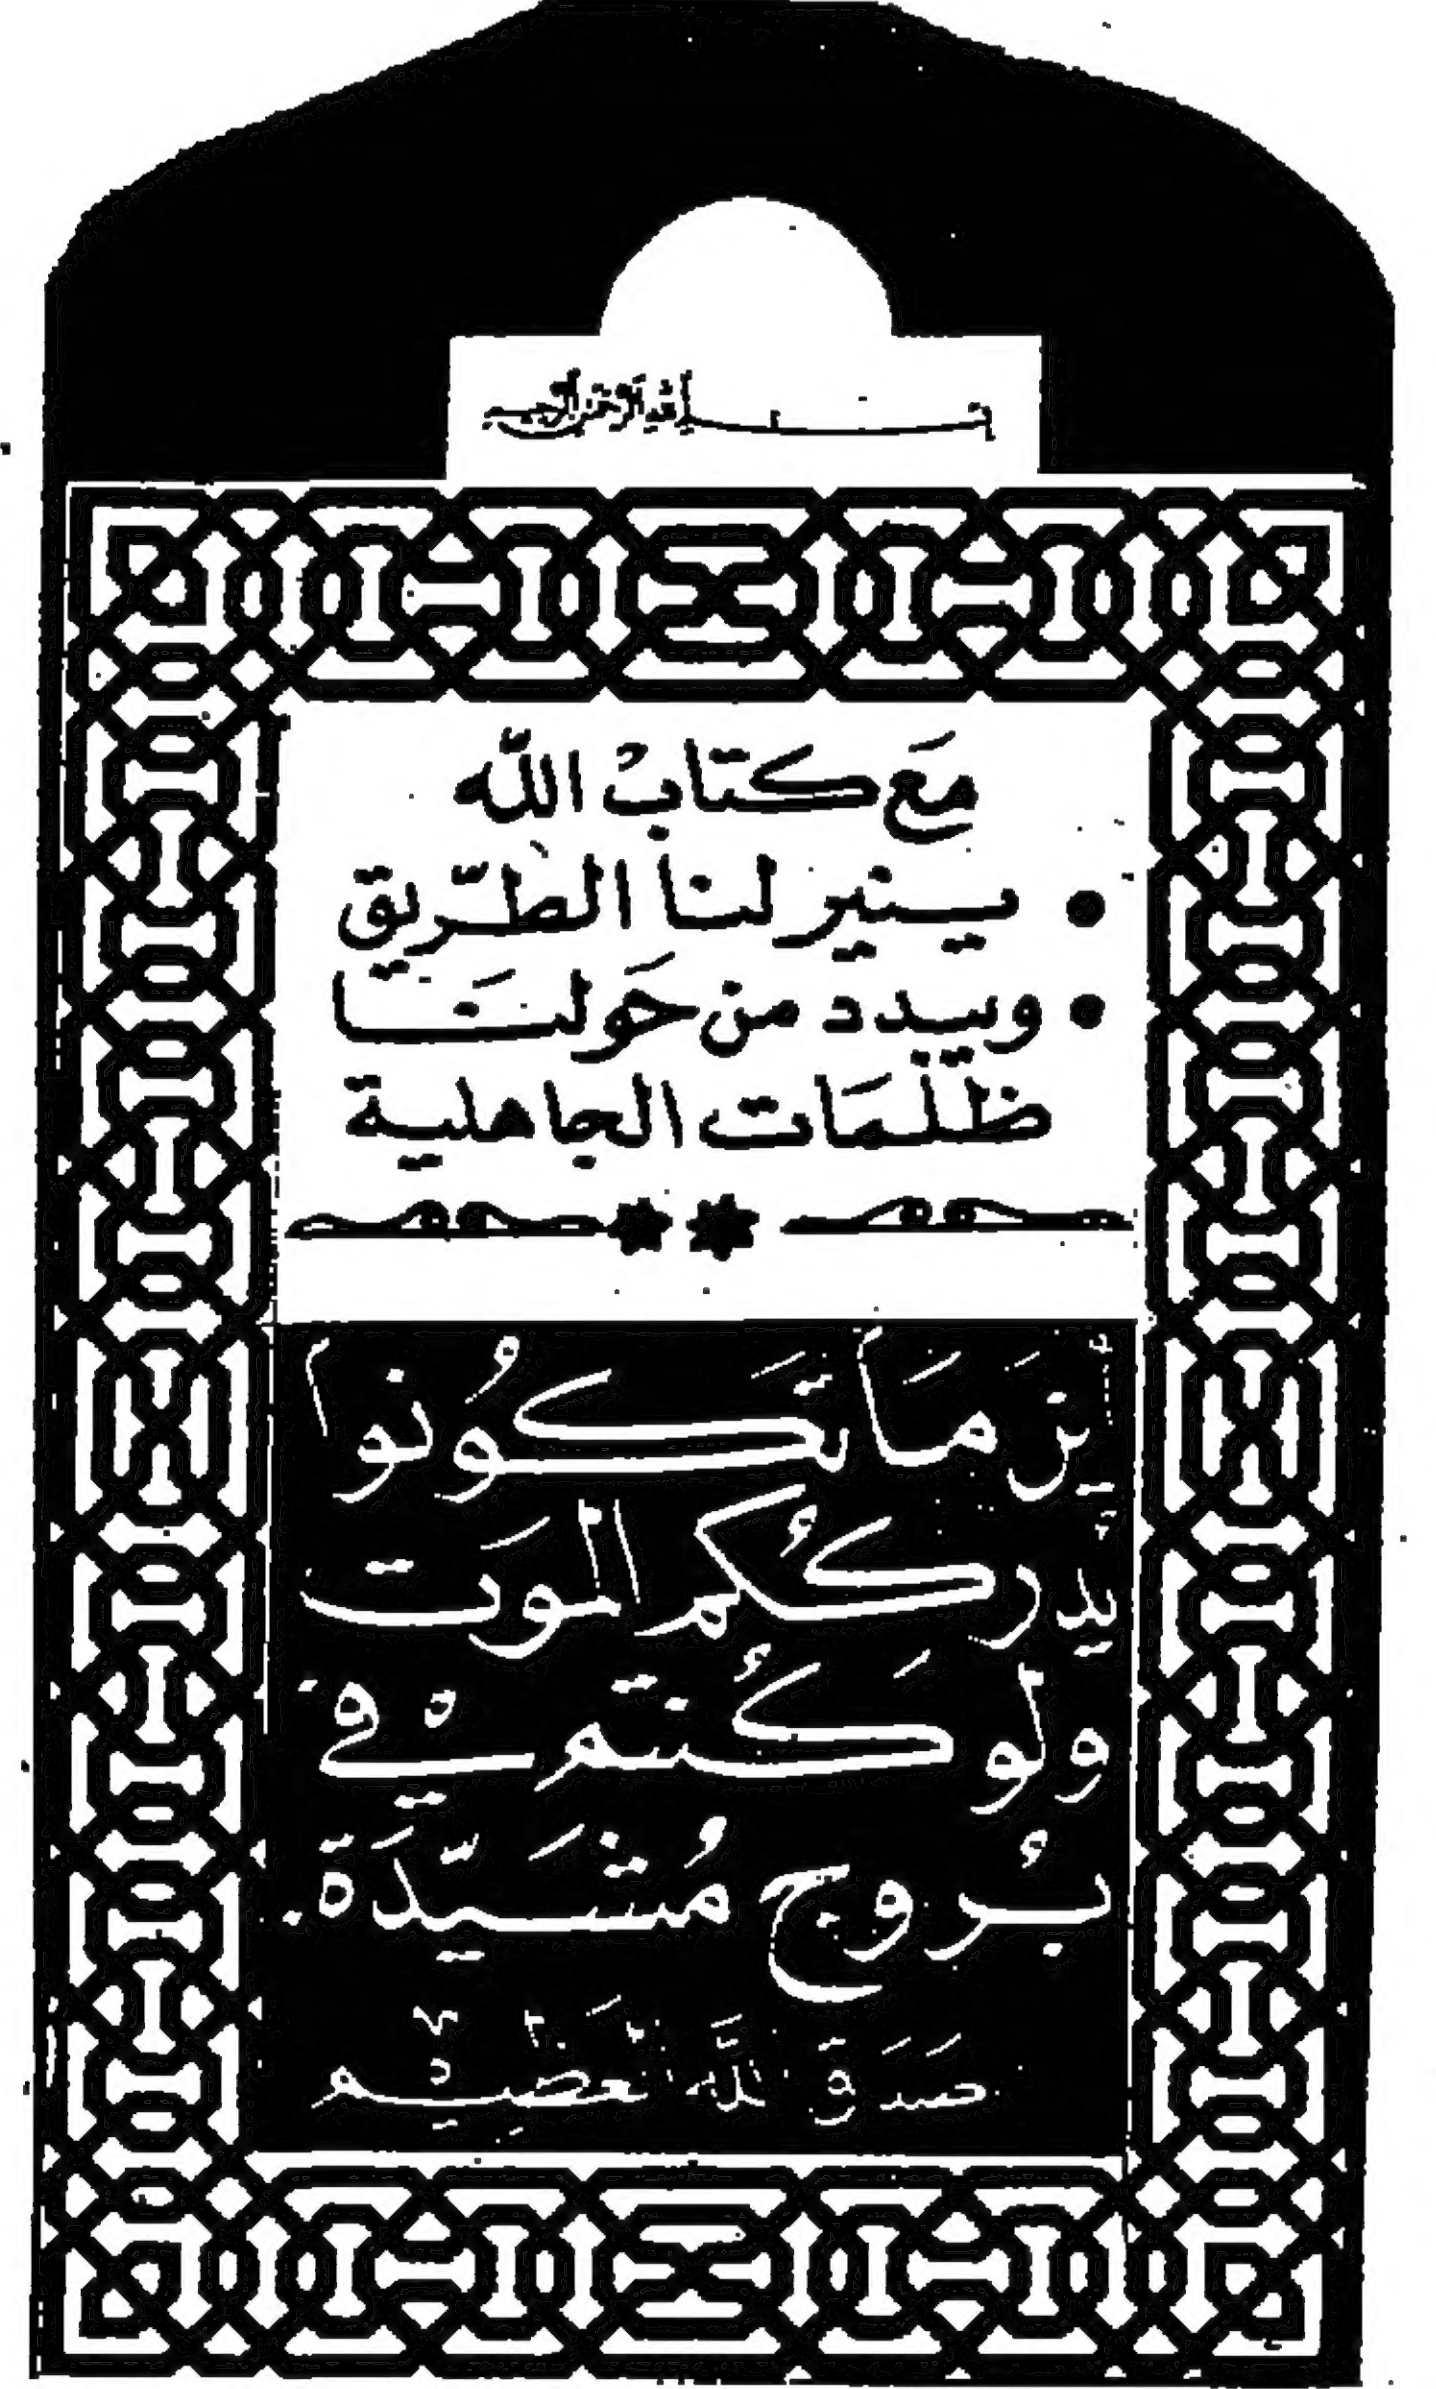 بسم الله الرحمن الرحيم
مَع كتابْ اللّه
• ينير لنا الطّريق
• ويبدد من حَولنَا
ظلمَات الجاهلية
أينَمَا تَكُونُوا
يُدركُكُم الموَت
وَلو كُنتمْ في
بُروج مُشَيَّدَة.
صَدَقَ اللَّه العَظِيْم